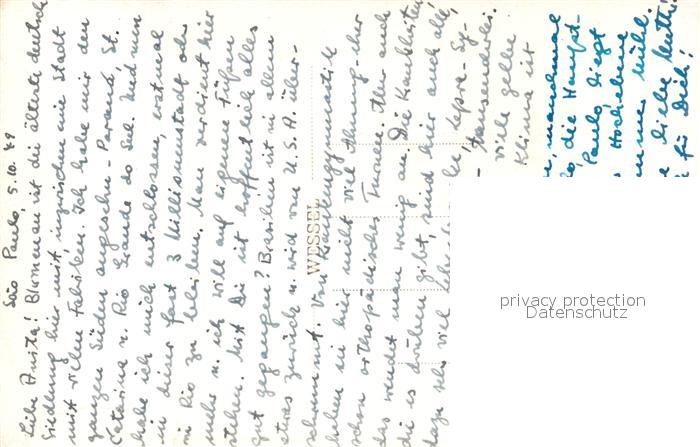 São Paulo, 5.10.49
Liebe Anita! Blumenau ist die älteste deutsche
Siedlung hier mit, inzwischen eine Stadt
mit vielen Fabriken. Ich habe mir den
ganzen Süden angesehen - Paraná, St.
Catarina u. Rio Grande do Sul. Und nun
habe ich mich entschlossen, erstmal
in dieser fast 3 Millionenstadt oder
in Rio zu bleiben. Man verdient hier
mehr u. ich will auf eigenen Füßen
stehen. Mit Dir ist hoffentlich alles
gut gegangen? Brasilien ist in allem
etwas zurück u. wird von U.S.A. über-
schwemmt. Von Krankengymnastik
haben sie hier nicht viel Ahnung - eher
schon orthopädisches Turnen. Aber auch
das wendet man wenig an. Die Krankheiten,
die es drüben gibt, sind hier auch alle,
dazu sehr viel Lepra - Sy-
tausenderlei.
Viele gelbe
Klima ist
manchmal
die Haupt-
Paulo liegt
Hochebene
kühl.
liebe Mutti
für Dich!
WESSEL
privacy protection
Datenschutz